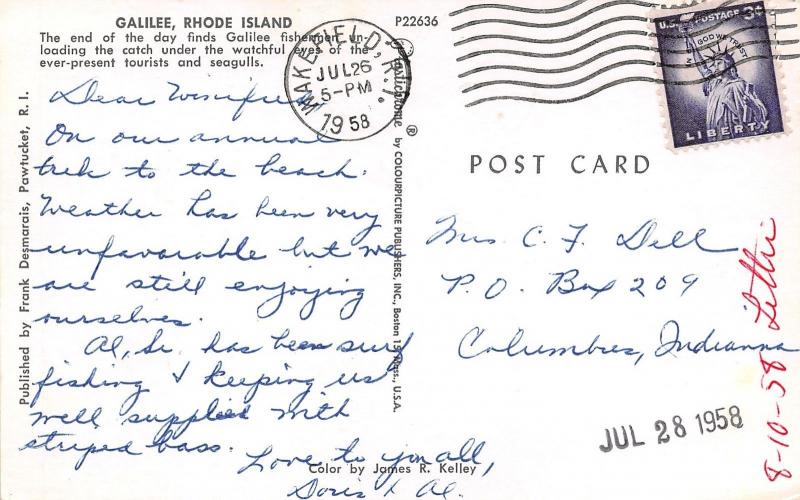 GALILEE, RHODE ISLAND
The end of the day finds Galilee fishermen un-
loading the catch under the watchful eyes of the
ever-present tourists and seagulls.
P22636
WAKEFIELD, R.I.
JUL 26
5-PM
1958
U.S. POSTAGE 3¢
IN GOD WE TRUST
LIBERTY
POST CARD
Published by Frank Desmarais, Pawtucket, R. I.
Plastichrome ® by COLOURPICTURE PUBLISHERS, INC., Boston 15, Mass., U.S.A.
Dear Winifred
On our annual
trek to the beach.
Weather has been very
unfavorable but we
are still enjoying
ourselves.
Al, Sr. has been surf
fishing & keeping us
well supplied with
striped bass.
Love to you all,
Doris & Al.
Color by James R. Kelley
Mrs. C. F. Dell
P.O. Box 209
Columbus, Indianna
JUL 28 1958
8-10-58